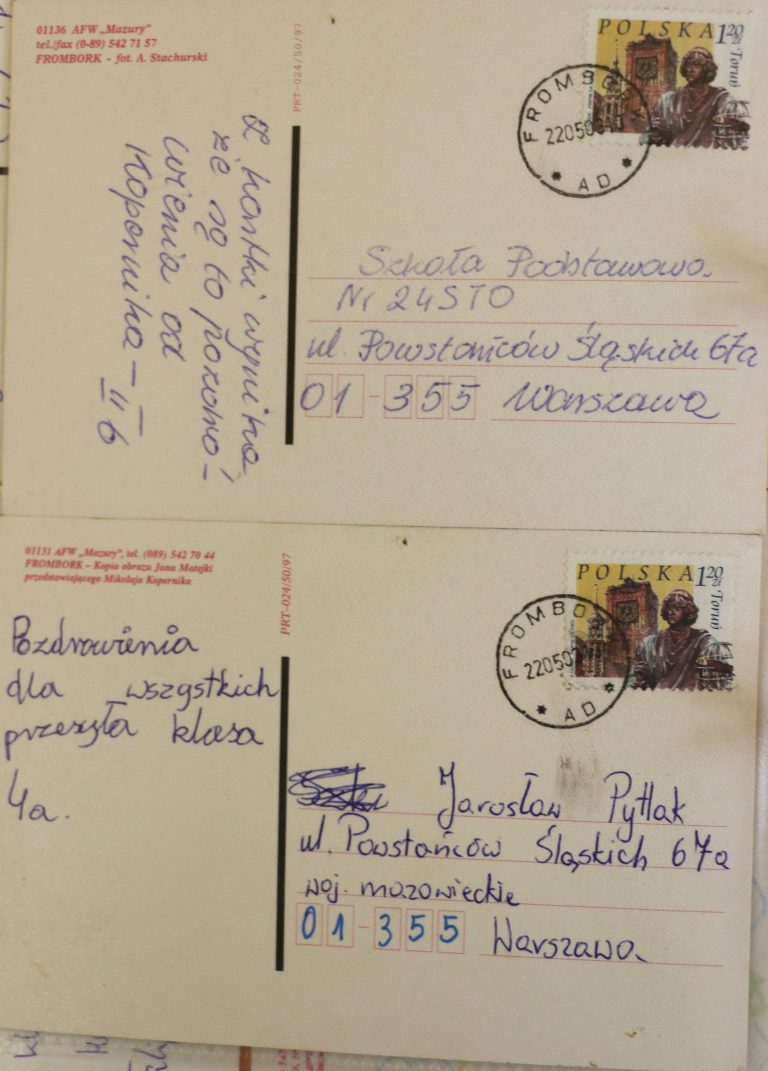 01136 AFW „Mazury"
tel./fax (0-89) 542 71 57
FROMBORK - fot. A. Stachurski
PRT-024/50/97
POLSKA 120
Toruń
FROMBORK
220503
* AD *
Z kartki wynika,
że są to pozdro-
wienia od
Kopernika - II b
Szkoła Podstawowa
Nr 24 STO
ul. Powstańców Śląskich 67a
01-355 Warszawa
01131 AFW „Mazury", tel. (089) 542 70 44
FROMBORK – Kopia obrazu Jana Matejki
przedstawiającego Mikołaja Kopernika
PRT-024/50/97
POLSKA 120
Toruń
FROMBO
220503
* AD *
Pozdrowienia
dla wszystkich
przesyła klasa
4a.
Jarosław Pytlak
ul. Powstańców Śląskich 67a
woj. mazowieckie
01-355 Warszawa